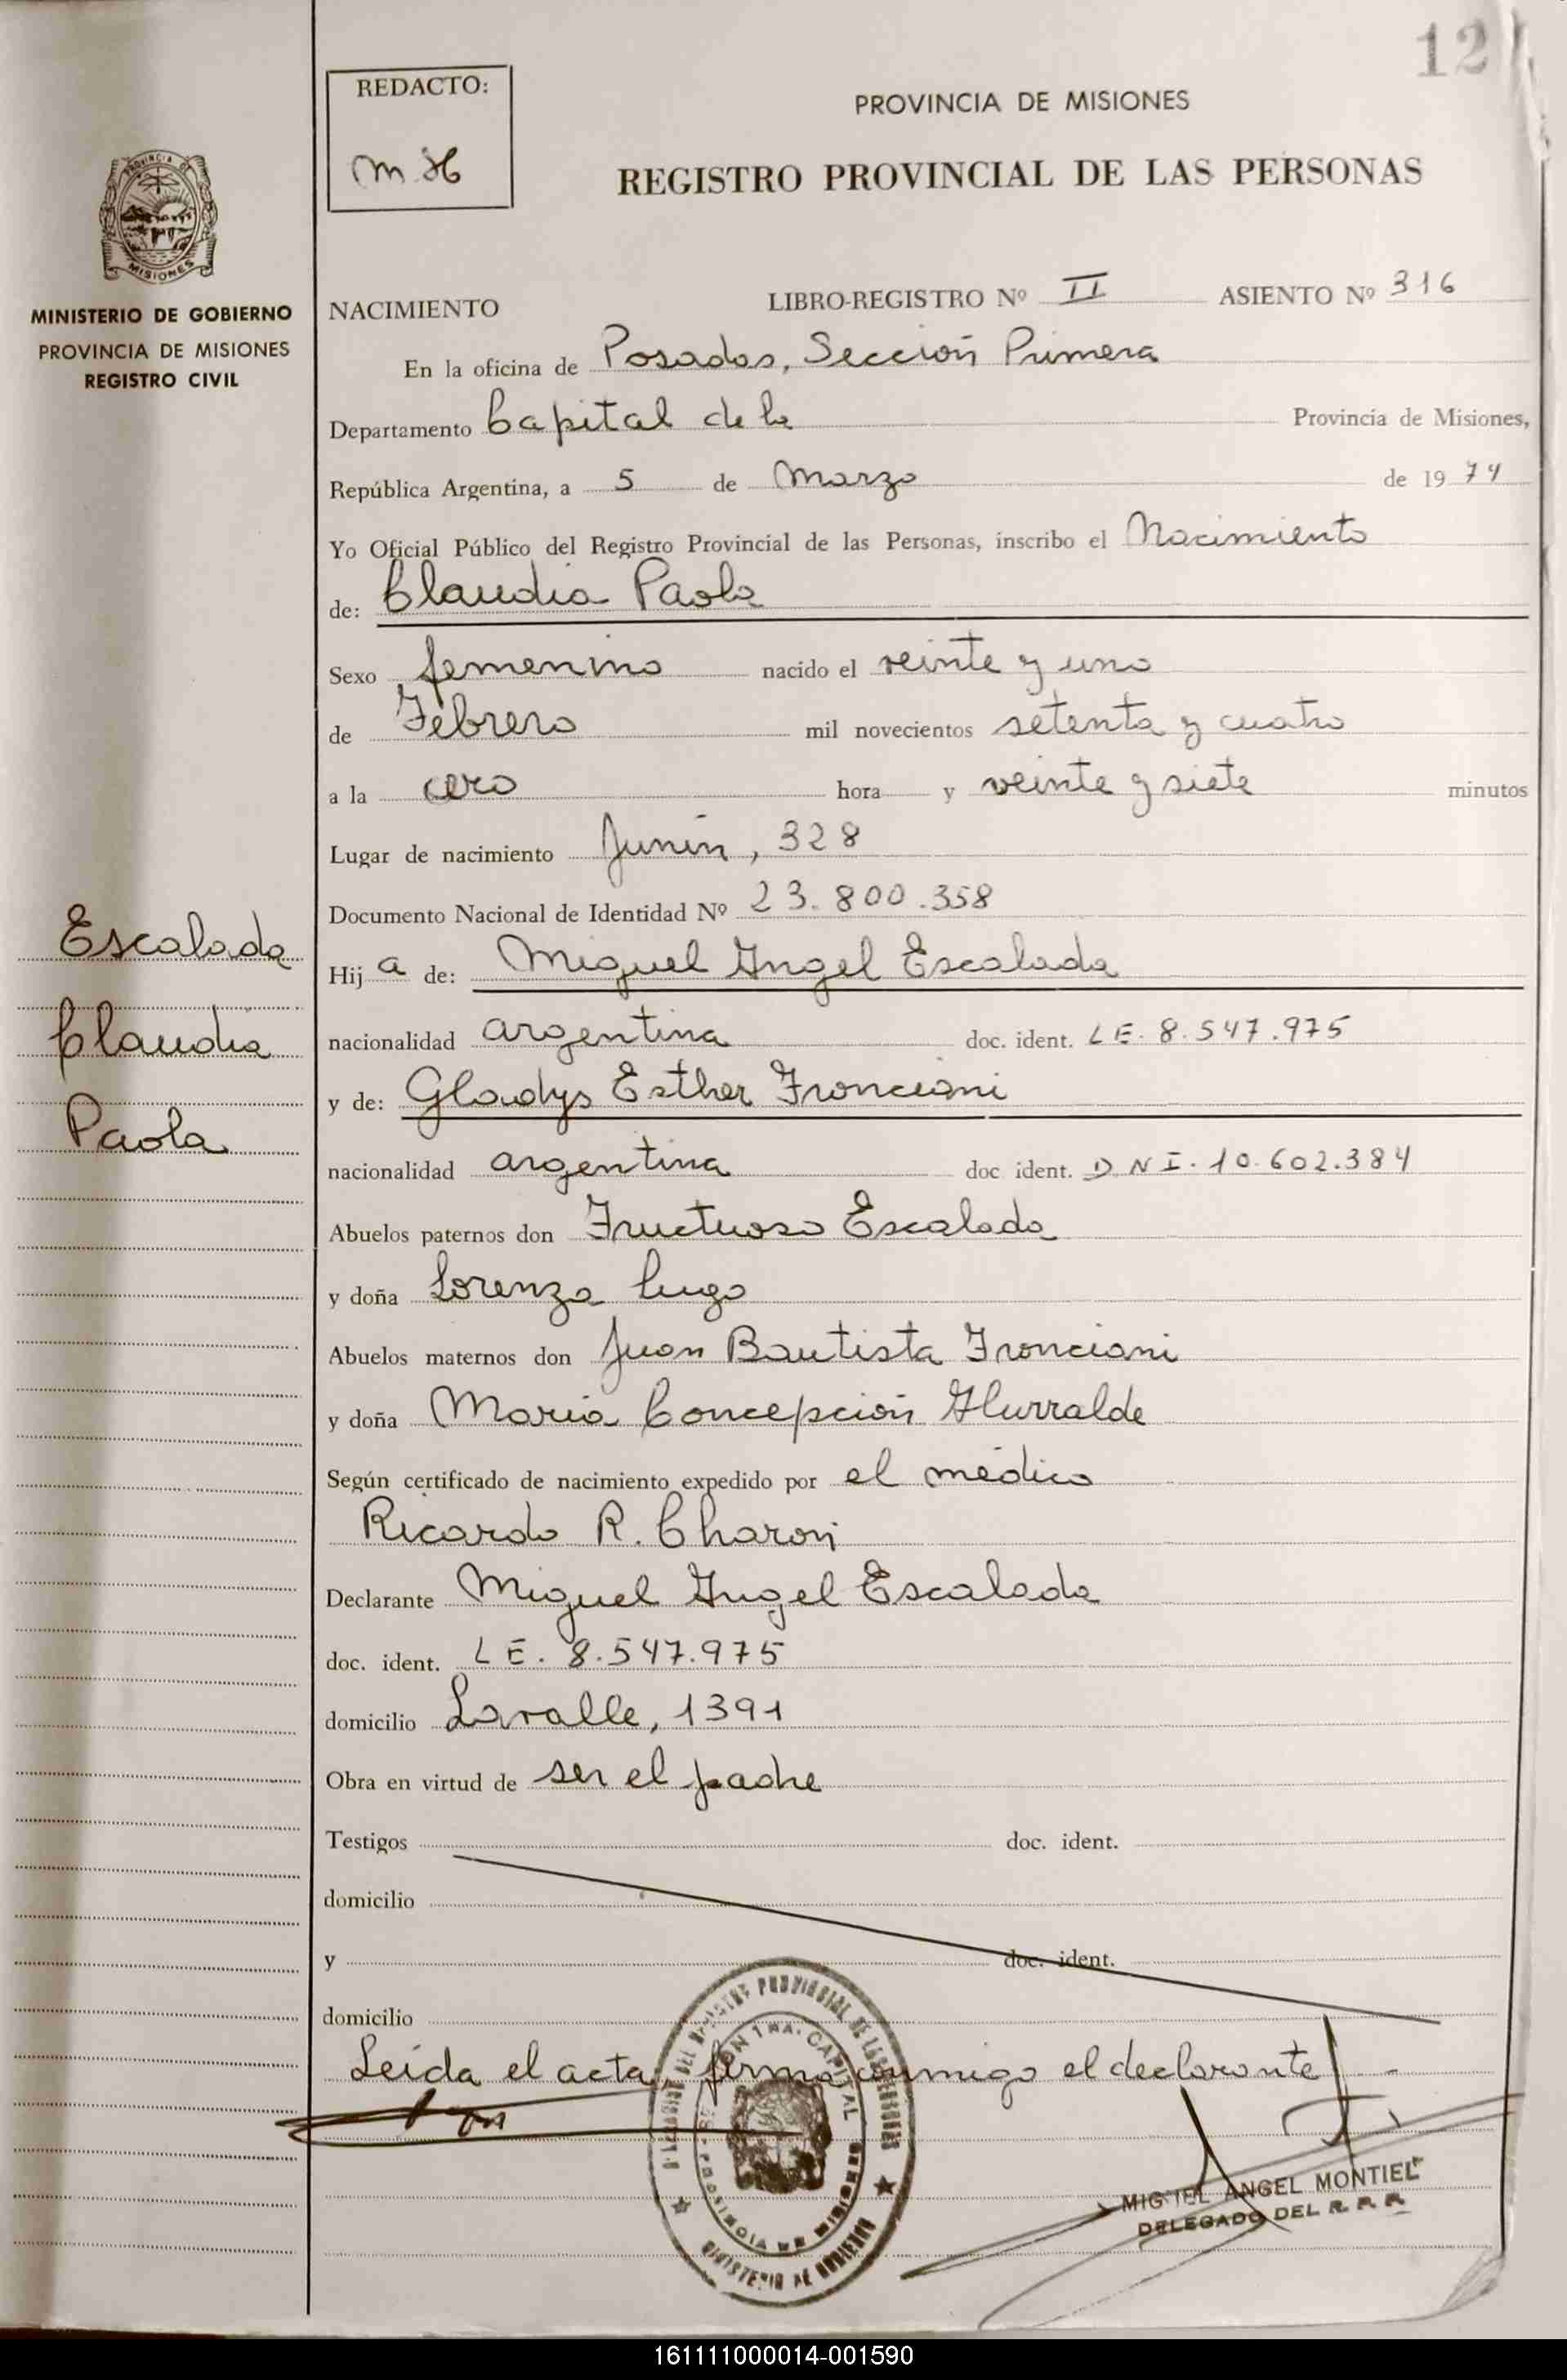 12
REDACTO:
M H
PROVINCIA DE MISIONES
REGISTRO PROVINCIAL DE LAS PERSONAS
PROVINCIA DE
MISIONES
MINISTERIO DE GOBIERNO
PROVINCIA DE MISIONES
REGISTRO CIVIL
NACIMIENTO LIBRO-REGISTRO Nº II ASIENTO Nº 316
En la oficina de Posadas, Sección Primera
Departamento Capital de la Provincia de Misiones,
República Argentina, a 5 de Marzo de 1974
Yo Oficial Público del Registro Provincial de las Personas, inscribo el Nacimiento
de: Claudia Paola
Sexo femenino nacido el veinte y uno
de Febrero mil novecientos setenta y cuatro
a la cero hora y veinte y siete minutos
Lugar de nacimiento Junín, 328
Documento Nacional de Identidad Nº 23.800.358
Escalada
Claudia
Paola
Hija de: Miguel Angel Escalada
nacionalidad argentina doc. ident. LE. 8.547.975
y de: Gladys Esther Fronciani
nacionalidad argentina doc ident. DNI. 10.602.384
Abuelos paternos don Fructuoso Escalada
y doña Lorenza Lugo
Abuelos maternos don Juan Bautista Fronciani
y doña María Concepción Iturralde
Según certificado de nacimiento expedido por el médico
Ricardo R. Charon
Declarante Miguel Angel Escalada
doc. ident. LE. 8.547.975
domicilio Lavalle, 1391
Obra en virtud de ser el padre
Testigos doc. ident.
domicilio
y doc. ident.
domicilio
Leída el acta, firma conmigo el declarante
MIGUEL ANGEL MONTIEL
DELEGADO DEL R. P. P.
161111000014-001590